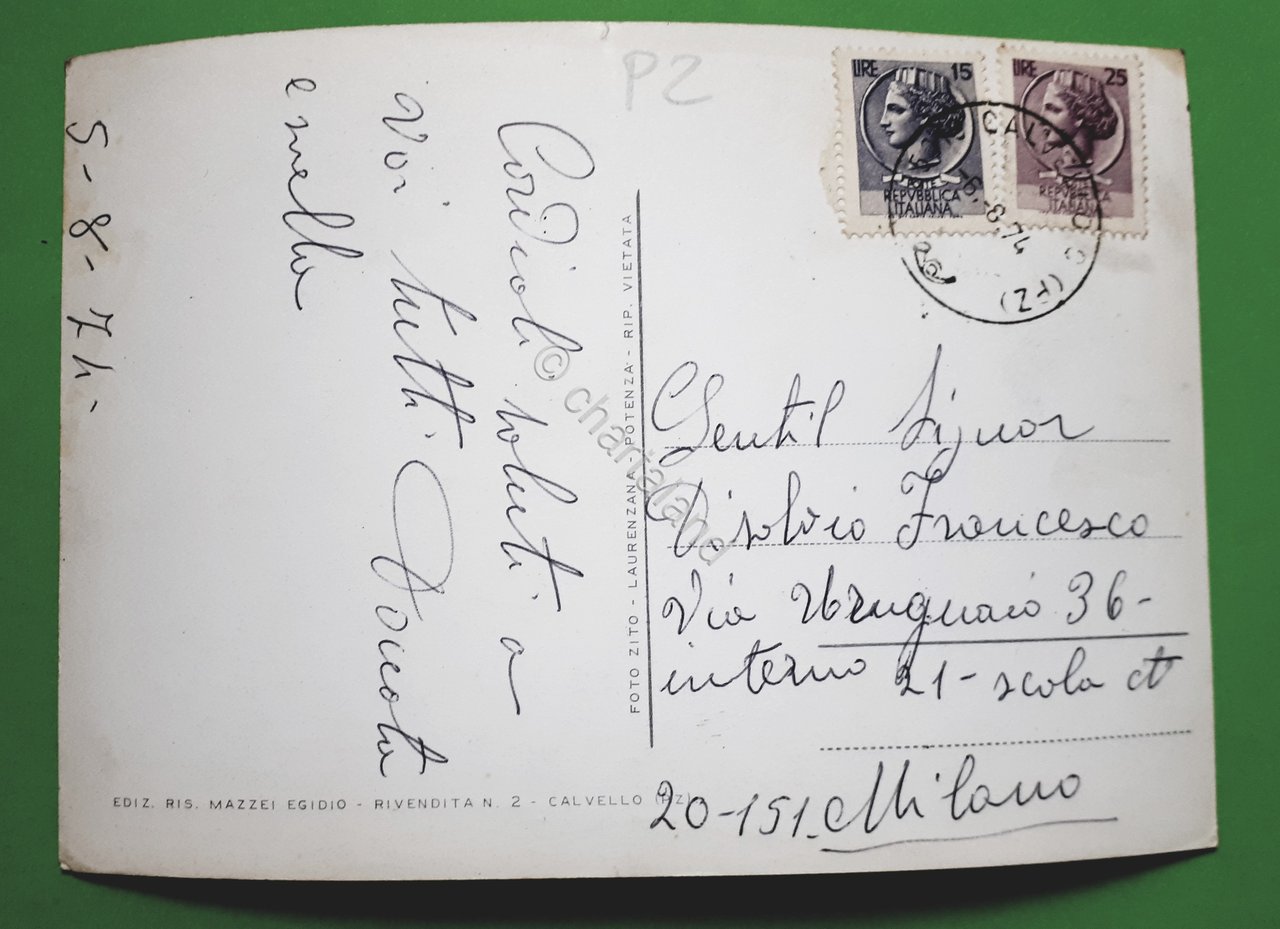 PZ
LIRE 15
REPUBBLICA
ITALIANA
LIRE 25
REPUBBLICA
ITALIANA
CALVELLO (PZ)
-6.-8.74
Cordiali saluti a
Voi tutti
e
5-8-74-
FOTO ZITO - LAURENZANA - POTENZA - RIP. VIETATA
Gentil Signor
Disalvio Francesco
Via Uruguaio 36-
interno 21- scala
20-151-Milano
EDIZ. RIS. MAZZEI EGIDIO - RIVENDITA N. 2 - CALVELLO (PZ)
© chartaland